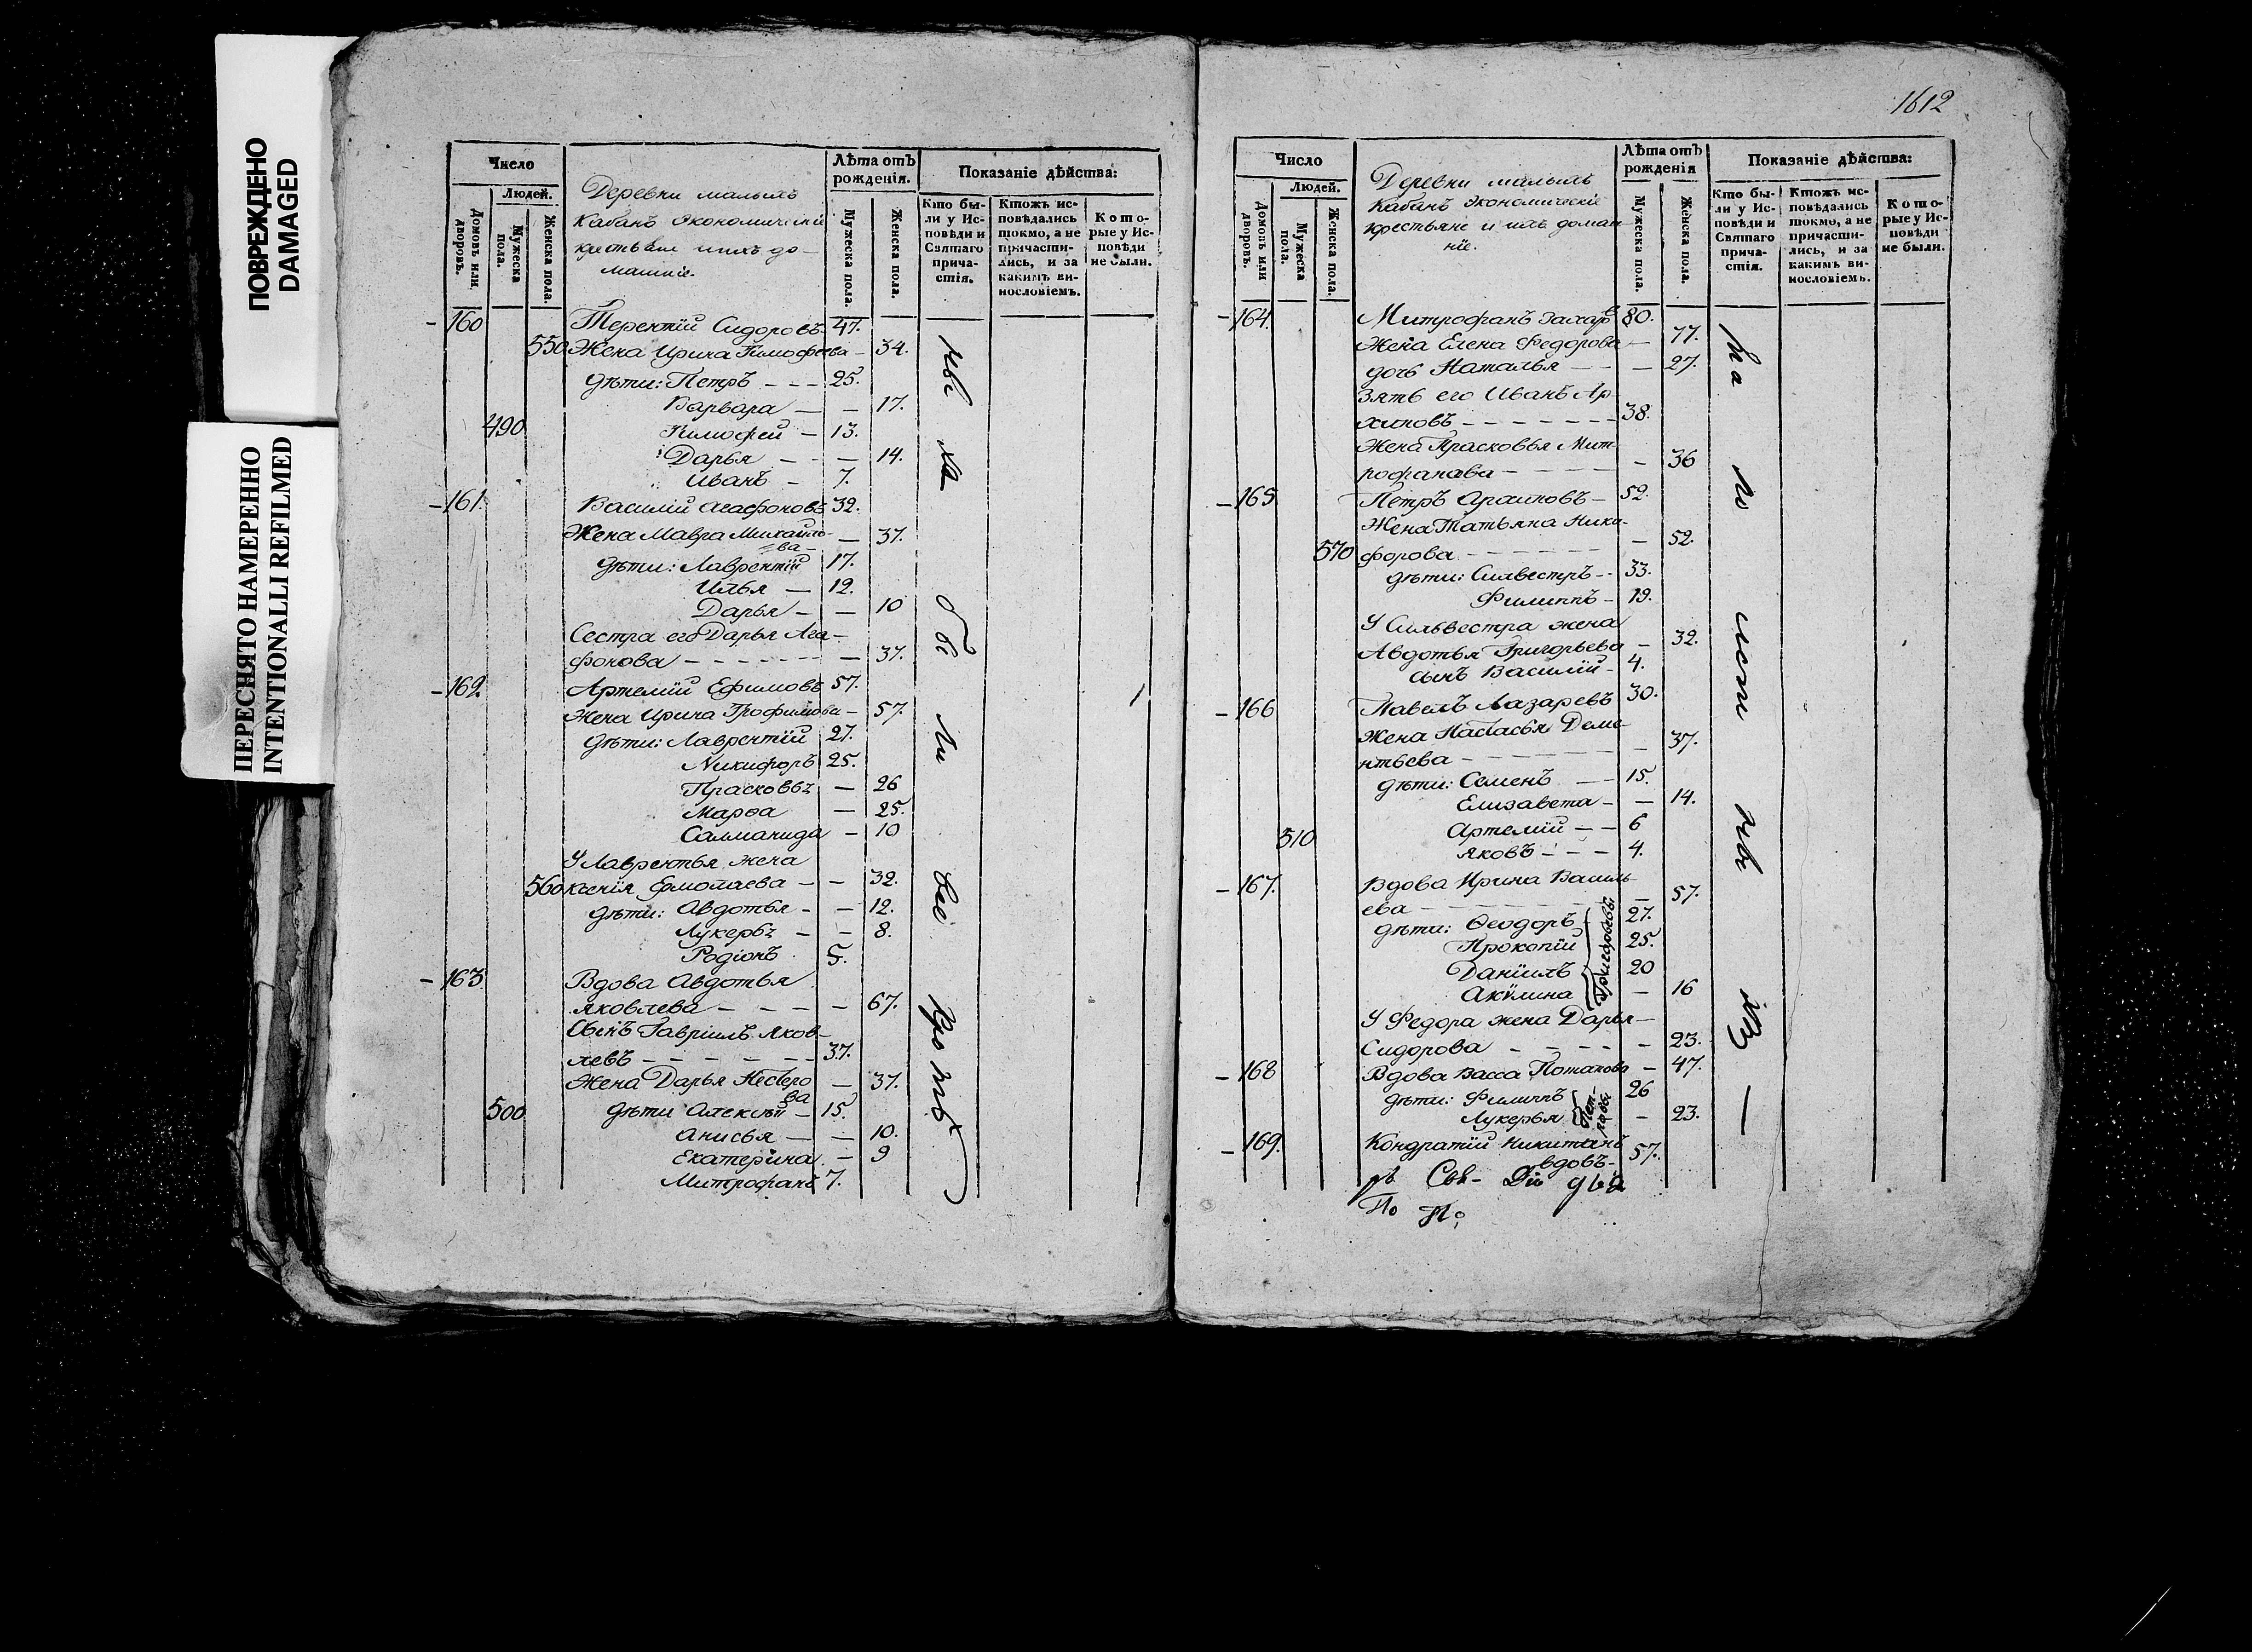 ПОВРЕЖДЕНО
DAMAGED
ПЕРЕСНЯТО НАМЕРЕННО
INTENTIONALLI REFILMED
Число
Людей.
Домовъ или дворовъ.
Мужеска пола.
Женска пола.
Деревни малыхъ
Кабанъ Экономическіе
крестьяне и ихъ до-
машніе.
Лѣта отъ рожденія.
Мужеска пола.
Женска пола.
Показаніе дѣйства:
Кто бы-
ли у Ис-
повѣди и
Святаго
прича-
стія.
Ктожъ ис-
повѣдались
токмо, а не
причасти-
лись, и за
какимъ ви-
нословіемъ.
Кото-
рые у Ис-
повѣди
не были.
160 Терентій Сидоровъ 47.
550 Жена Ирина Тимофеева – 34.
дѣти: Петръ – – – 25.
Варвара – – 17.
490 Тимофей – 13.
Дарья – – – 14.
Иванъ – 7.
161. Василій Агафоновъ 32.
Жена Мавра Михайло-
ва – – 37.
дѣти: Лаврентій 17.
Илья – 12.
Дарья – – 10
Сестра его Дарья Ага-
фонова – – – – – 37.
162. Артемій Ефимовъ 57.
Жена Ирина Трофимова – 57.
дѣти: Лаврентій 27.
Никифоръ 25.
Прасковья – 26
Марѳа – 25.
Саламанида – 10
У Лаврентья жена
560 Ксенія Ермолаева – – 32.
дѣти: Авдотья – – 12.
Лукерья – – 8.
Родіонъ 5.
163 Вдова Авдотья
Яковлева – – – – 67.
Сынъ Гавріилъ Яков-
левъ – – – – – 37.
Жена Дарья Нестеро
ва – 37.
500 дѣти Алексѣй – 15.
Анисья – – 10.
Екатерина – 9
Митрофанъ 7.
1612
Число
Людей.
Домовъ или дворовъ.
Мужеска пола.
Женска пола.
Деревни малыхъ
Кабанъ Экономическіе
крестьяне и ихъ домаш
ніе.
Лѣта отъ рожденія
Мужеска пола.
Женска пола.
Показаніе дѣйства:
Кто бы-
ли у Ис-
повѣди и
Святаго
прича-
стія.
Ктожъ ис-
повѣдались
токмо, а не
причасти-
лись, и за
какимъ ви-
нословіемъ.
Кото-
рые у Ис-
повѣди
не были.
164. Митрофанъ Захаръ 80.
Жена Елена Федорова – 77.
дочь Наталья – – – 27.
Зять его Иванъ Ар
хиповъ – – – – – – 38.
Жена Прасковья Мит-
рофанава – – – – – 36
165 Петръ Архиповъ – 52.
Жена Татьяна Ники-
570 форова – – – – – – 52.
дѣти: Сильвестръ – 33.
Филиппъ – 19.
У Сильвестра жена
Авдотья Григорьева – 32.
сынъ Василій – 4.
166 Павелъ Лазаревъ 30.
Жена Настасья Деме-
нтьева – – – – – 37.
дѣти: Семенъ – – 15.
Елизавета – – 14.
510 Артемій – – 6
Яковъ – – – 4.
167. Вдова Ирина Василь-
ева – – – – – – 57.
дѣти: Ѳеодоръ 27.
Прокопій 25.
Даніилъ 20
Акилина – 16
Григорьевы
У Федора жена Дарья –
Сидорова – – – – – 23.
168 Вдова Васса Потапова – 47.
дѣти: Филиппъ 26
Лукерья – 23.
Пет-
ровы
169. Кондратій Никитинъ
вдовъ – 57.